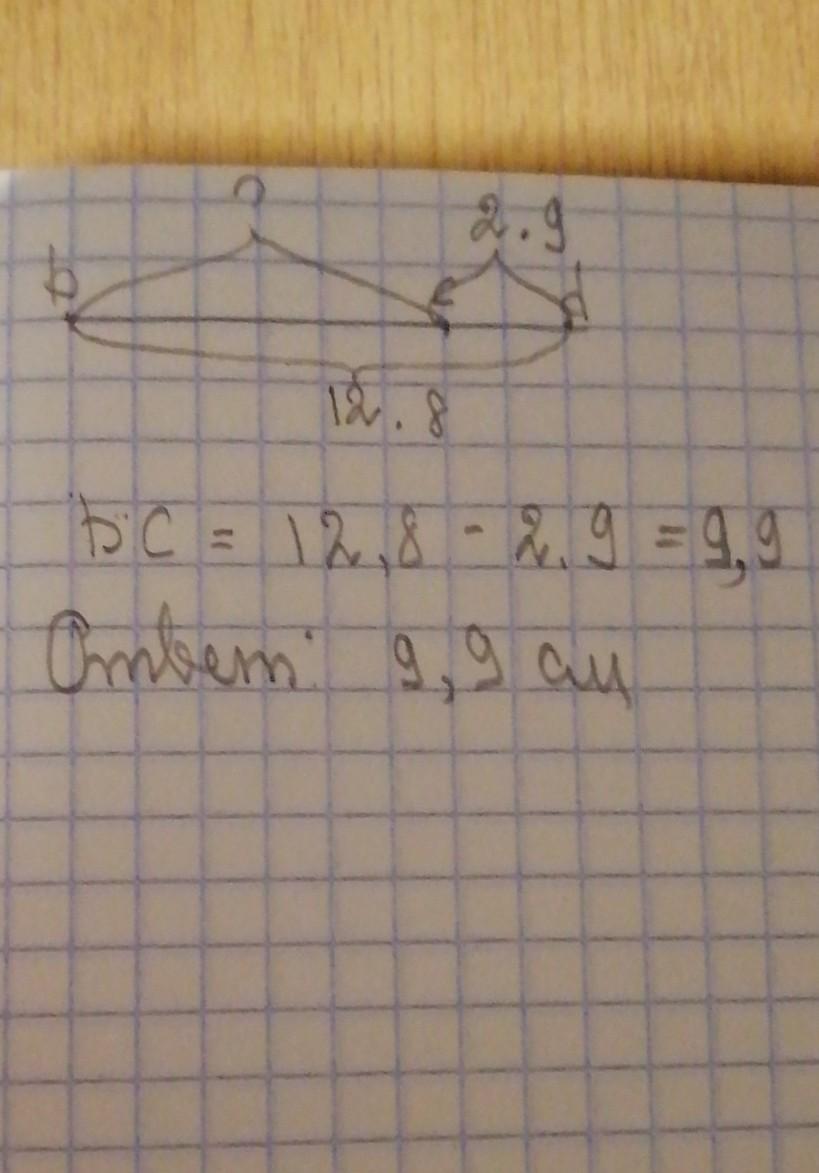 ? 2.9
b c d
12.8
bC = 12,8 - 2.9 = 9,9
Ответ: 9,9 см